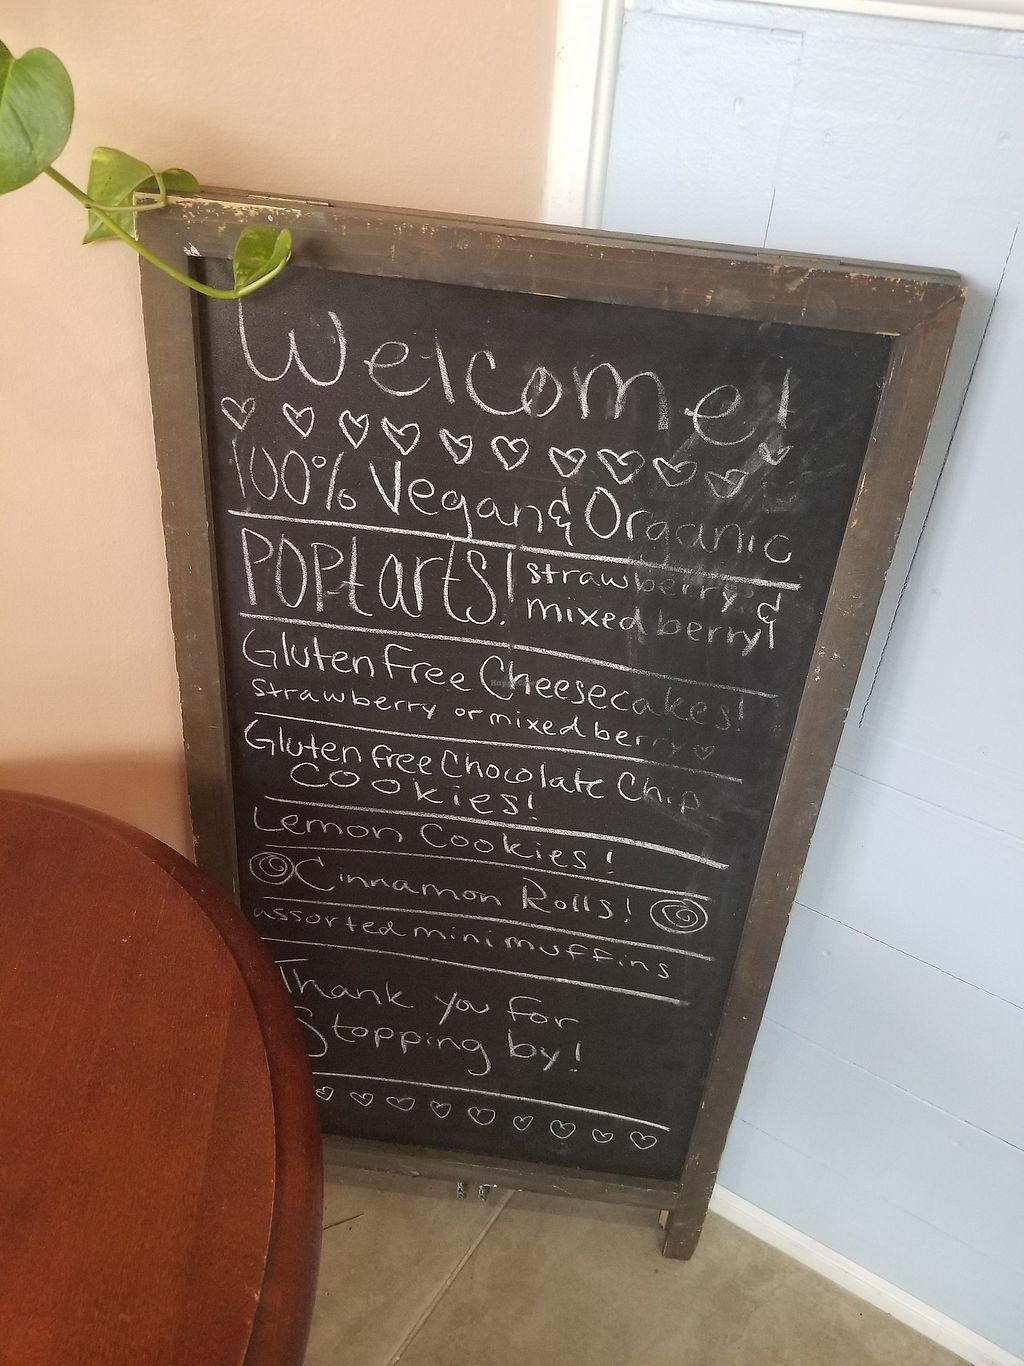 Welcome!
100% Vegan & Organic
POPtarts! strawberry &
mixed berry!
Gluten Free Cheesecakes!
strawberry or mixed berry
Gluten free Chocolate Chip
Cookies!
Lemon Cookies!
Cinnamon Rolls!
assorted mini muffins
Thank you for
Stopping by!